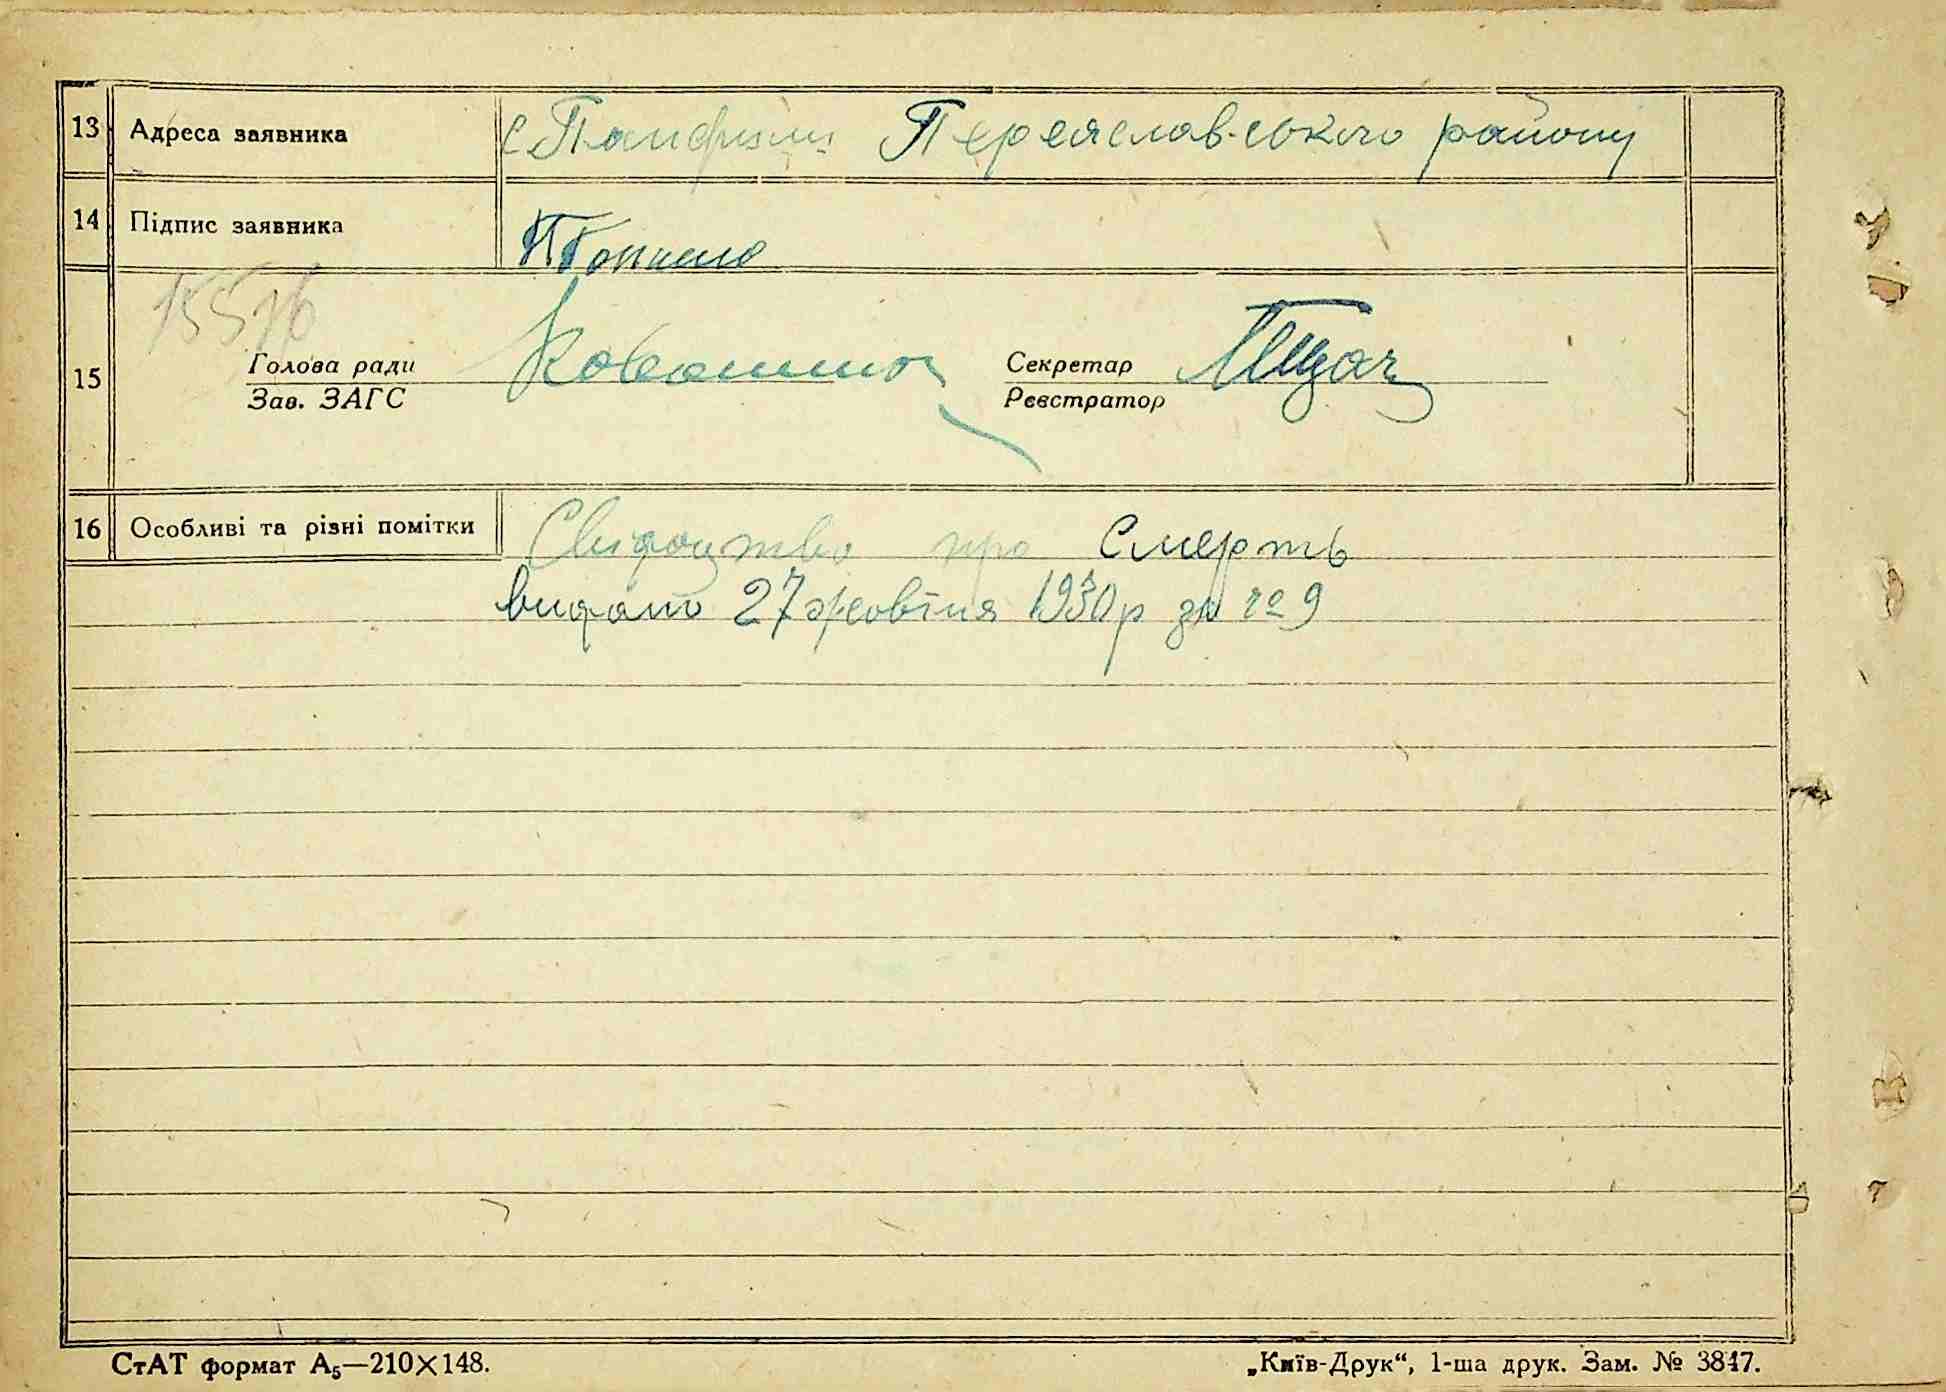 13 Адреса заявника с Панфили Переяславського району
14 Підпис заявника
15576
15 Голова ради Секретар
Зав. ЗАГС Реєстратор
16 Особливі та різні помітки Свидоцтво про Смерть
видано 27 жовтня 1930 р за № 9
СтАТ формат А₅—210×148. „Київ-Друк“, 1-ша друк. Зам. № 3847.